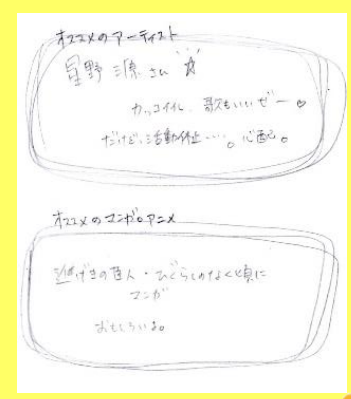 オススメのアーティスト
星野源さん☆
カッコイイし、歌もいいぜー♡
だけど、活動休止…。心配。
オススメのマンガ。アニメ
進げきの巨人・ひぐらしのなく頃に
マンガ
おもしろいよ。